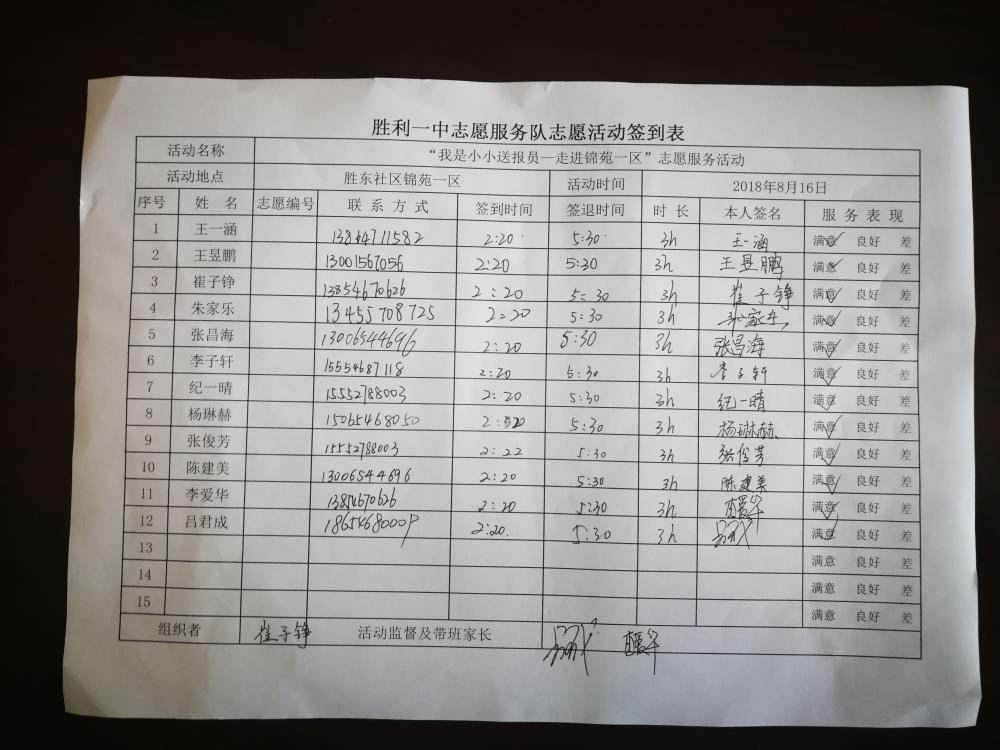 胜利一中志愿服务队志愿活动签到表
活动名称 “我是小小送报员—走进锦苑一区”志愿服务活动
活动地点 胜东社区锦苑一区 活动时间 2018年8月16日
序号 姓 名 志愿编号 联系方式 签到时间 签退时间 时 长 本人签名 服务表现
1 王一涵 13864711582 2:20 5:30 3h 王一涵 满意 良好 差
2 王昱鹏 13001567056 2:20 5:30 3h 王昱鹏 满意 良好 差
3 崔子铮 13854670626 2:20 5:30 3h 崔子铮 满意 良好 差
4 朱家乐 13455708725 2:20 5:30 3h 朱家乐 满意 良好 差
5 张昌海 13006544696 2:20 5:30 3h 张昌海 满意 良好 差
6 李子轩 15554687118 2:20 5:30 3h 李子轩 满意 良好 差
7 纪一晴 15552788003 2:20 5:30 3h 纪一晴 满意 良好 差
8 杨琳赫 15065468050 2:20 5:30 3h 杨琳赫 满意 良好 差
9 张俊芳 15552788003 2:22 5:30 3h 张俊芳 满意 良好 差
10 陈建美 13006544696 2:20 5:30 3h 陈建美 满意 良好 差
11 李爱华 13854670626 2:20 5:30 3h 满意 良好 差
12 吕君成 18654680009 2:20 5:30 3h 满意 良好 差
13 满意 良好 差
14 满意 良好 差
15 满意 良好 差
组织者 崔子铮 活动监督及带班家长